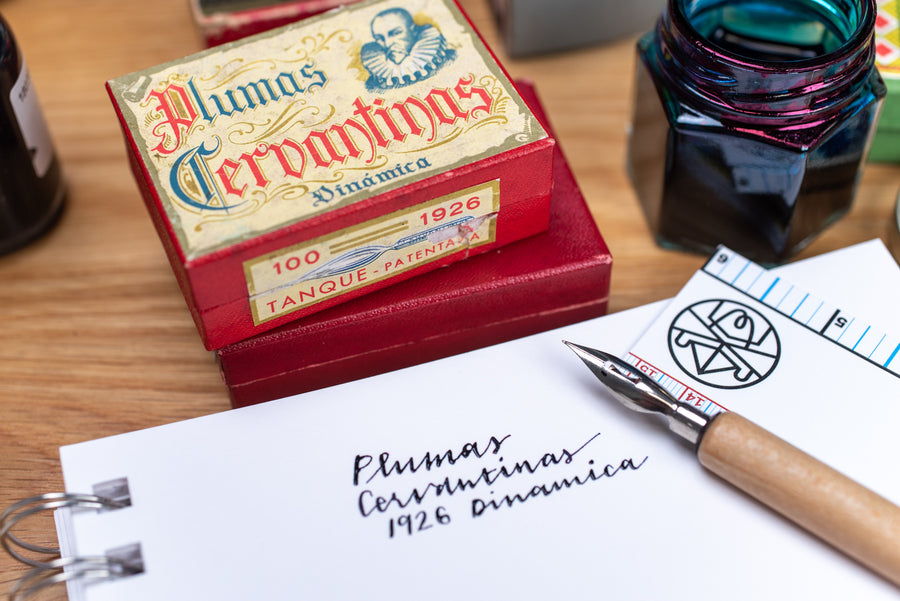 Plumas
Cervantinas
Dinámica
100 1926
TANQUE-PATENTADA
Plumas
Cervantinas
1926 Dinamica
6
5
15
14